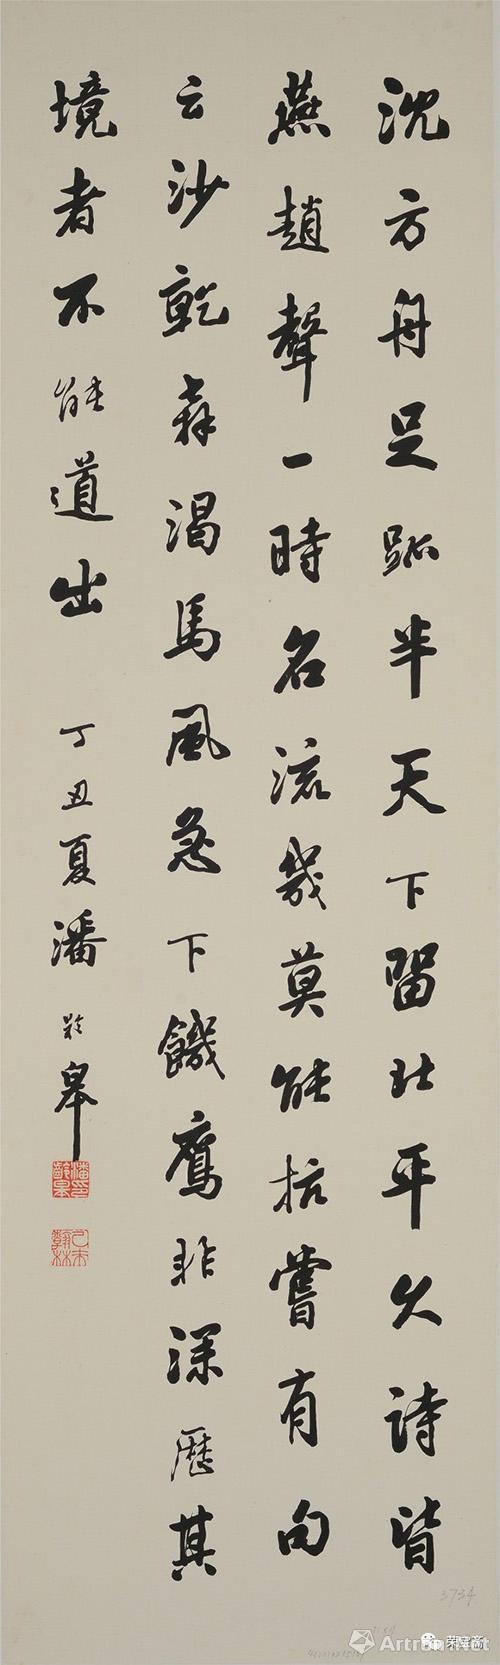 沈方舟足跡半天下留北平久詩皆
燕趙聲一時名流幾莫能抗嘗有句
云沙乾森渴馬風急下饑鷹非深歷其
境者不能道出
丁丑夏潘齡皋
潘印齡皋
己未翰林
3734
荣宝斋
Artron.Net